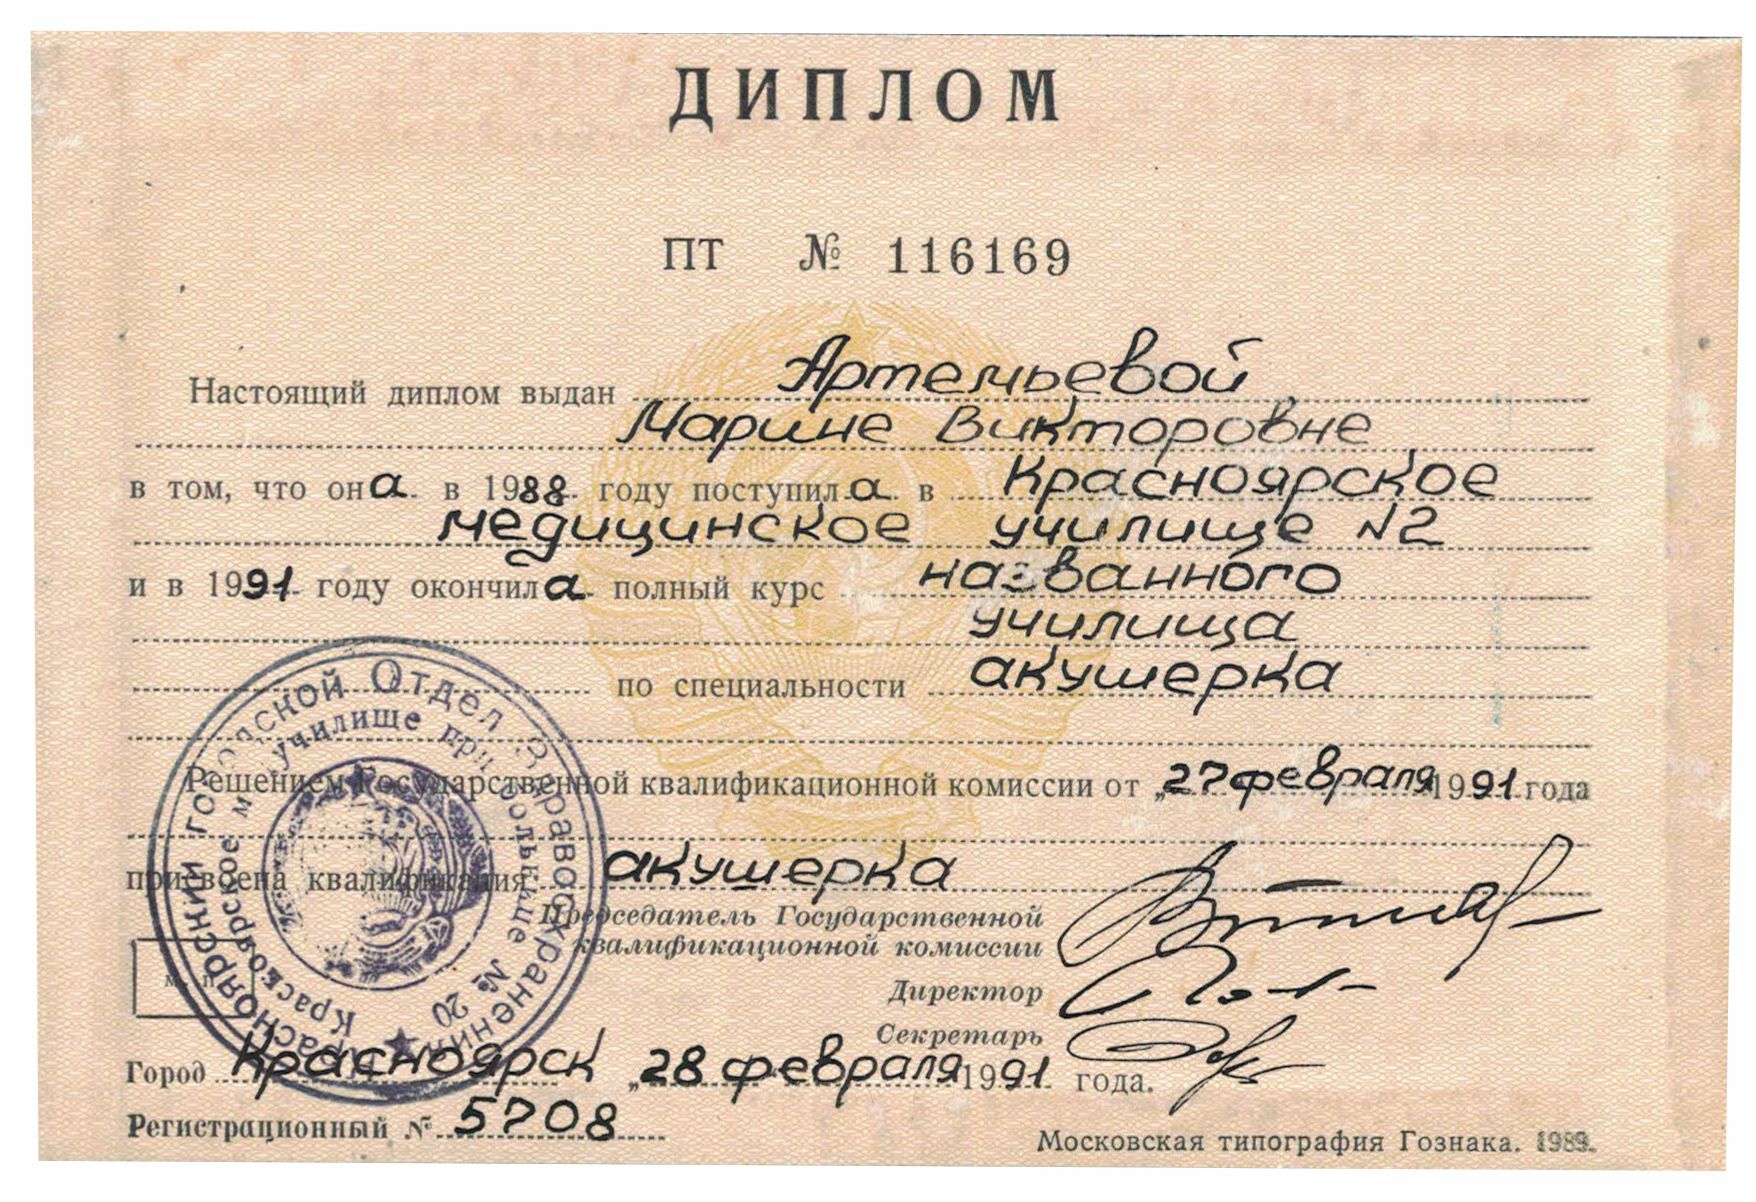 ДИПЛОМ
ПТ № 116169
Настоящий диплом выдан Артемьевой
Марине Викторовне
в том, что она в 1988 году поступила в Красноярское
медицинское училище N2
и в 1991 году окончила полный курс названного
училища
по специальности акушерка
Решением Государственной квалификационной комиссии от „27 февраля 1991 года
присвоена квалификация акушерка
Председатель Государственной
квалификационной комиссии
Директор
Секретарь
Город Красноярск „28 февраля 1991 года.
Регистрационный № 5708
Московская типография Гознака. 1989.
Красноярский городской Отдел Здравоохранения
Красноярское училище при больнице № 20